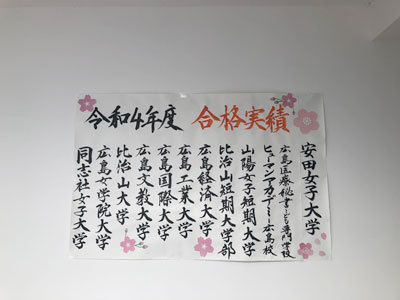 令和4年度 合格実績
安田女子大学
広島医療秘書こども専門学校
ヒューマンアカデミー広島校
山陽女子短期大学
比治山大学短期大学部
広島経済大学
広島工業大学
広島国際大学
広島文教大学
比治山大学
広島女学院大学
同志社女子大学